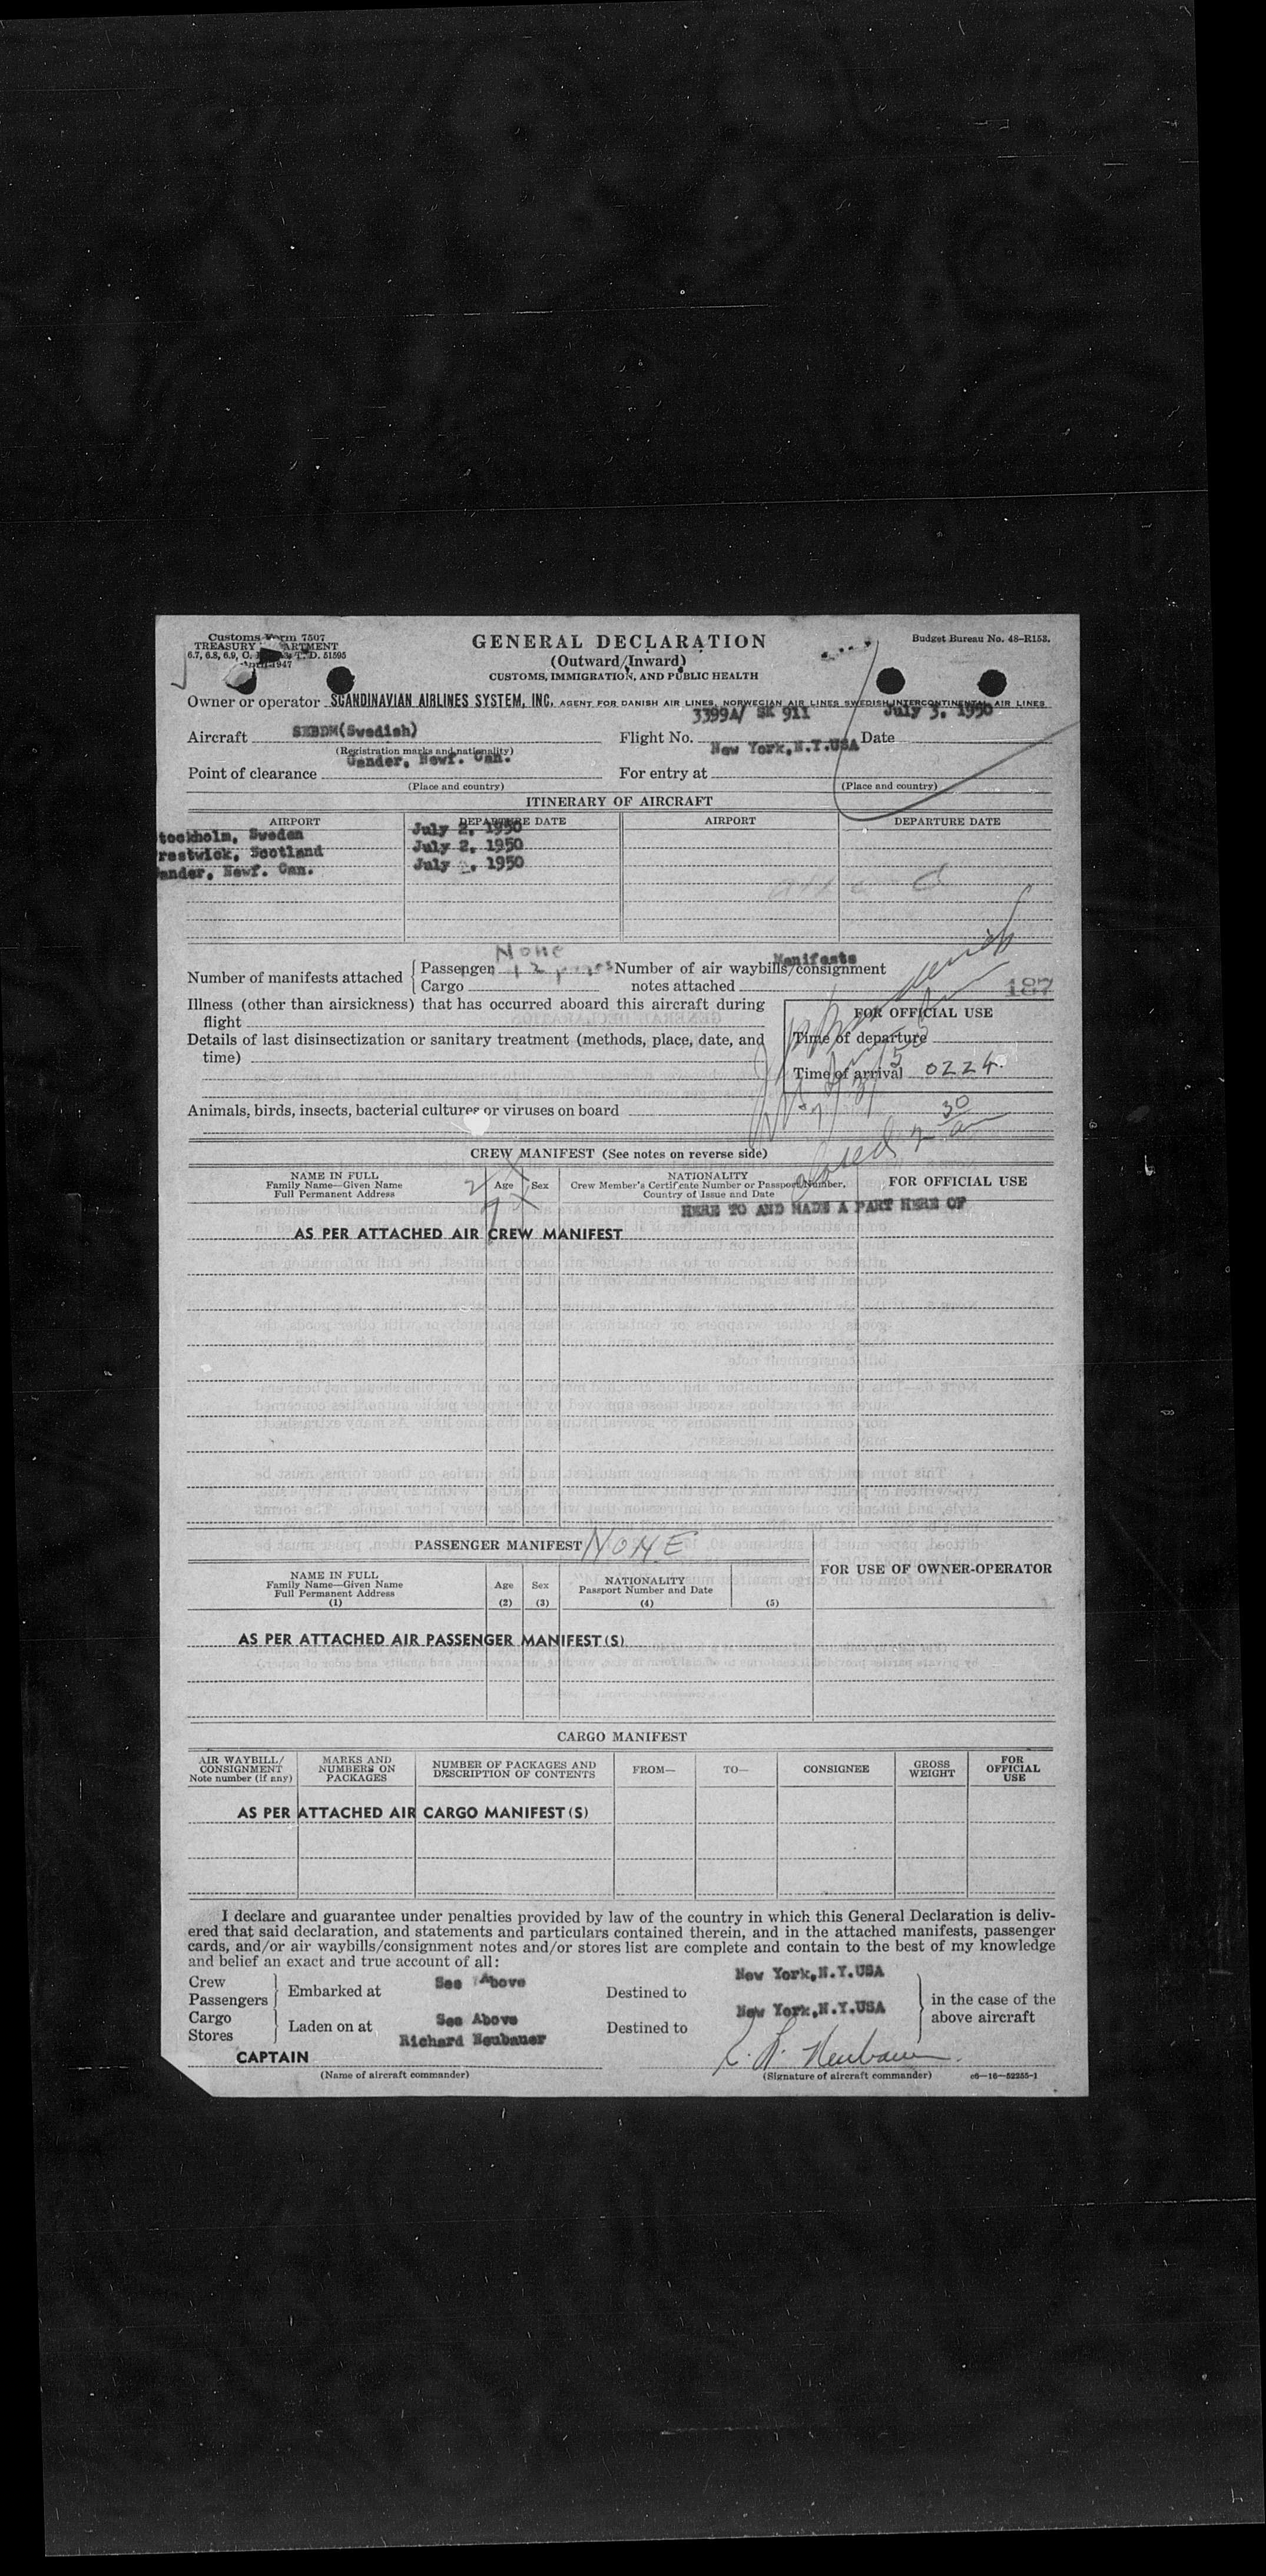 Customs Form 7507
TREASURY DEPARTMENT
6.7, 6.8, 6.9, C. T. D. 51595
April 1947
GENERAL DECLARATION
(Outward/Inward)
CUSTOMS, IMMIGRATION, AND PUBLIC HEALTH
Budget Bureau No. 48—R153.
Owner or operator SCANDINAVIAN AIRLINES SYSTEM, INC. AGENT FOR DANISH AIR LINES, NORWEGIAN AIR LINES SWEDISH INTERCONTINENTAL AIR LINES
Aircraft SEBDM(Swedish) Flight No. 3399A/ SK 911 Date July 3, 1950
(Registration marks and nationality)
Point of clearance Gander, Newf. Can. For entry at New York,N.Y.USA
(Place and country) (Place and country)
ITINERARY OF AIRCRAFT
AIRPORT DEPARTURE DATE AIRPORT DEPARTURE DATE
tockholm, Sweden July 2, 1950
restwick, Scotland July 2, 1950
ander, Newf. Can. July , 1950
None
Number of manifests attached Passenger Number of air waybills/consignment Manifests
Cargo notes attached
187
Illness (other than airsickness) that has occurred aboard this aircraft during
flight
FOR OFFICIAL USE
Details of last disinsectization or sanitary treatment (methods, place, date, and
time)
Time of departure
Time of arrival 0224
Animals, birds, insects, bacterial cultures or viruses on board
closed 2 30 am
CREW MANIFEST (See notes on reverse side)
NAME IN FULL
Family Name—Given Name
Full Permanent Address
Age Sex
NATIONALITY
Crew Member's Certificate Number or Passport Number,
Country of Issue and Date
FOR OFFICIAL USE
HERE TO AND MADE A PART HERE OF
AS PER ATTACHED AIR CREW MANIFEST
PASSENGER MANIFEST NONE
NAME IN FULL
Family Name—Given Name
Full Permanent Address
(1)
Age
(2)
Sex
(3)
NATIONALITY
Passport Number and Date
(4)
(5)
FOR USE OF OWNER-OPERATOR
AS PER ATTACHED AIR PASSENGER MANIFEST(S)
CARGO MANIFEST
AIR WAYBILL/
CONSIGNMENT
Note number (if any)
MARKS AND
NUMBERS ON
PACKAGES
NUMBER OF PACKAGES AND
DESCRIPTION OF CONTENTS
FROM—
TO—
CONSIGNEE
GROSS
WEIGHT
FOR
OFFICIAL
USE
AS PER ATTACHED AIR CARGO MANIFEST(S)
I declare and guarantee under penalties provided by law of the country in which this General Declaration is deliv-
ered that said declaration, and statements and particulars contained therein, and in the attached manifests, passenger
cards, and/or air waybills/consignment notes and/or stores list are complete and contain to the best of my knowledge
and belief an exact and true account of all:
Crew
Passengers Embarked at See Above Destined to New York,N.Y.USA
Cargo
Stores Laden on at See Above Destined to New York,N.Y.USA
in the case of the
above aircraft
CAPTAIN Richard Neubauer
(Name of aircraft commander) (Signature of aircraft commander) c6—16—52255-1